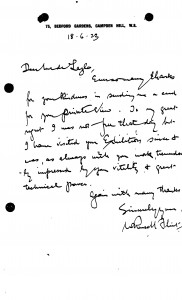 76, BEDFORD GARDENS, CAMPDEN HILL, W.8.
18-6-33
Dear
Ever so many thanks
for your kindness in sending me a card
for your private view. To my great
regret I was not free that day but
I have visited your Exhibition since &
was, as always with your work, tremendous-
ly impressed by your vitality & great
technical power.
Again with many thanks
Sincerely yours,
W Russell Flint